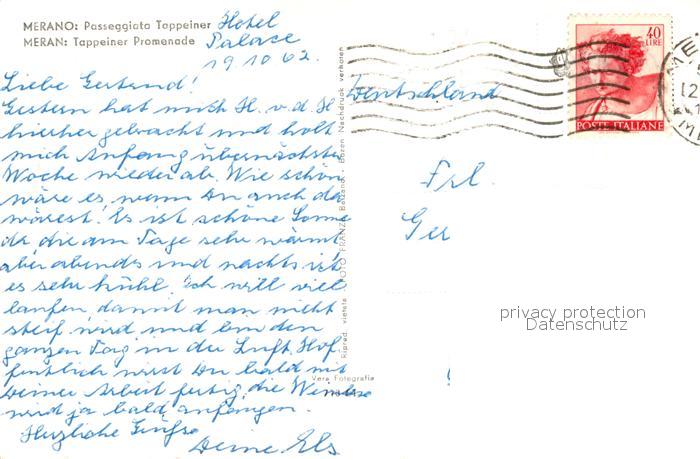 MERANO: Passeggiata Tappeiner
MERAN: Tappeiner Promenade
Hotel
Palace
19 10 62.
Liebe Gertrud!
Gestern hat mich H. v. d. H
hierher gebracht und holt
mich Anfang übernächster
Woche wieder ab. Wie schön
wäre es, wenn Du auch da
wärest. Es ist schöne Sonne
da die am Tage sehr wärmt,
aber abends und nachts ist
es sehr kühl. Ich will viel
laufen, damit man nicht
steif wird und bin den
ganzen Tag in der Luft. Hof-
fentlich wirst Du bald mit
Deiner Arbeit fertig, die
wird ja bald anfangen.
Herzliche Grüsse
Deine Els
FOTO FRANZ Bolzano - Bozen Nachdruck verboten
Ripred. vietata
Vera Fotografia
40
LIRE
POSTE ITALIANE
Deutschland
Frl.
Ger
privacy protection
Datenschutz